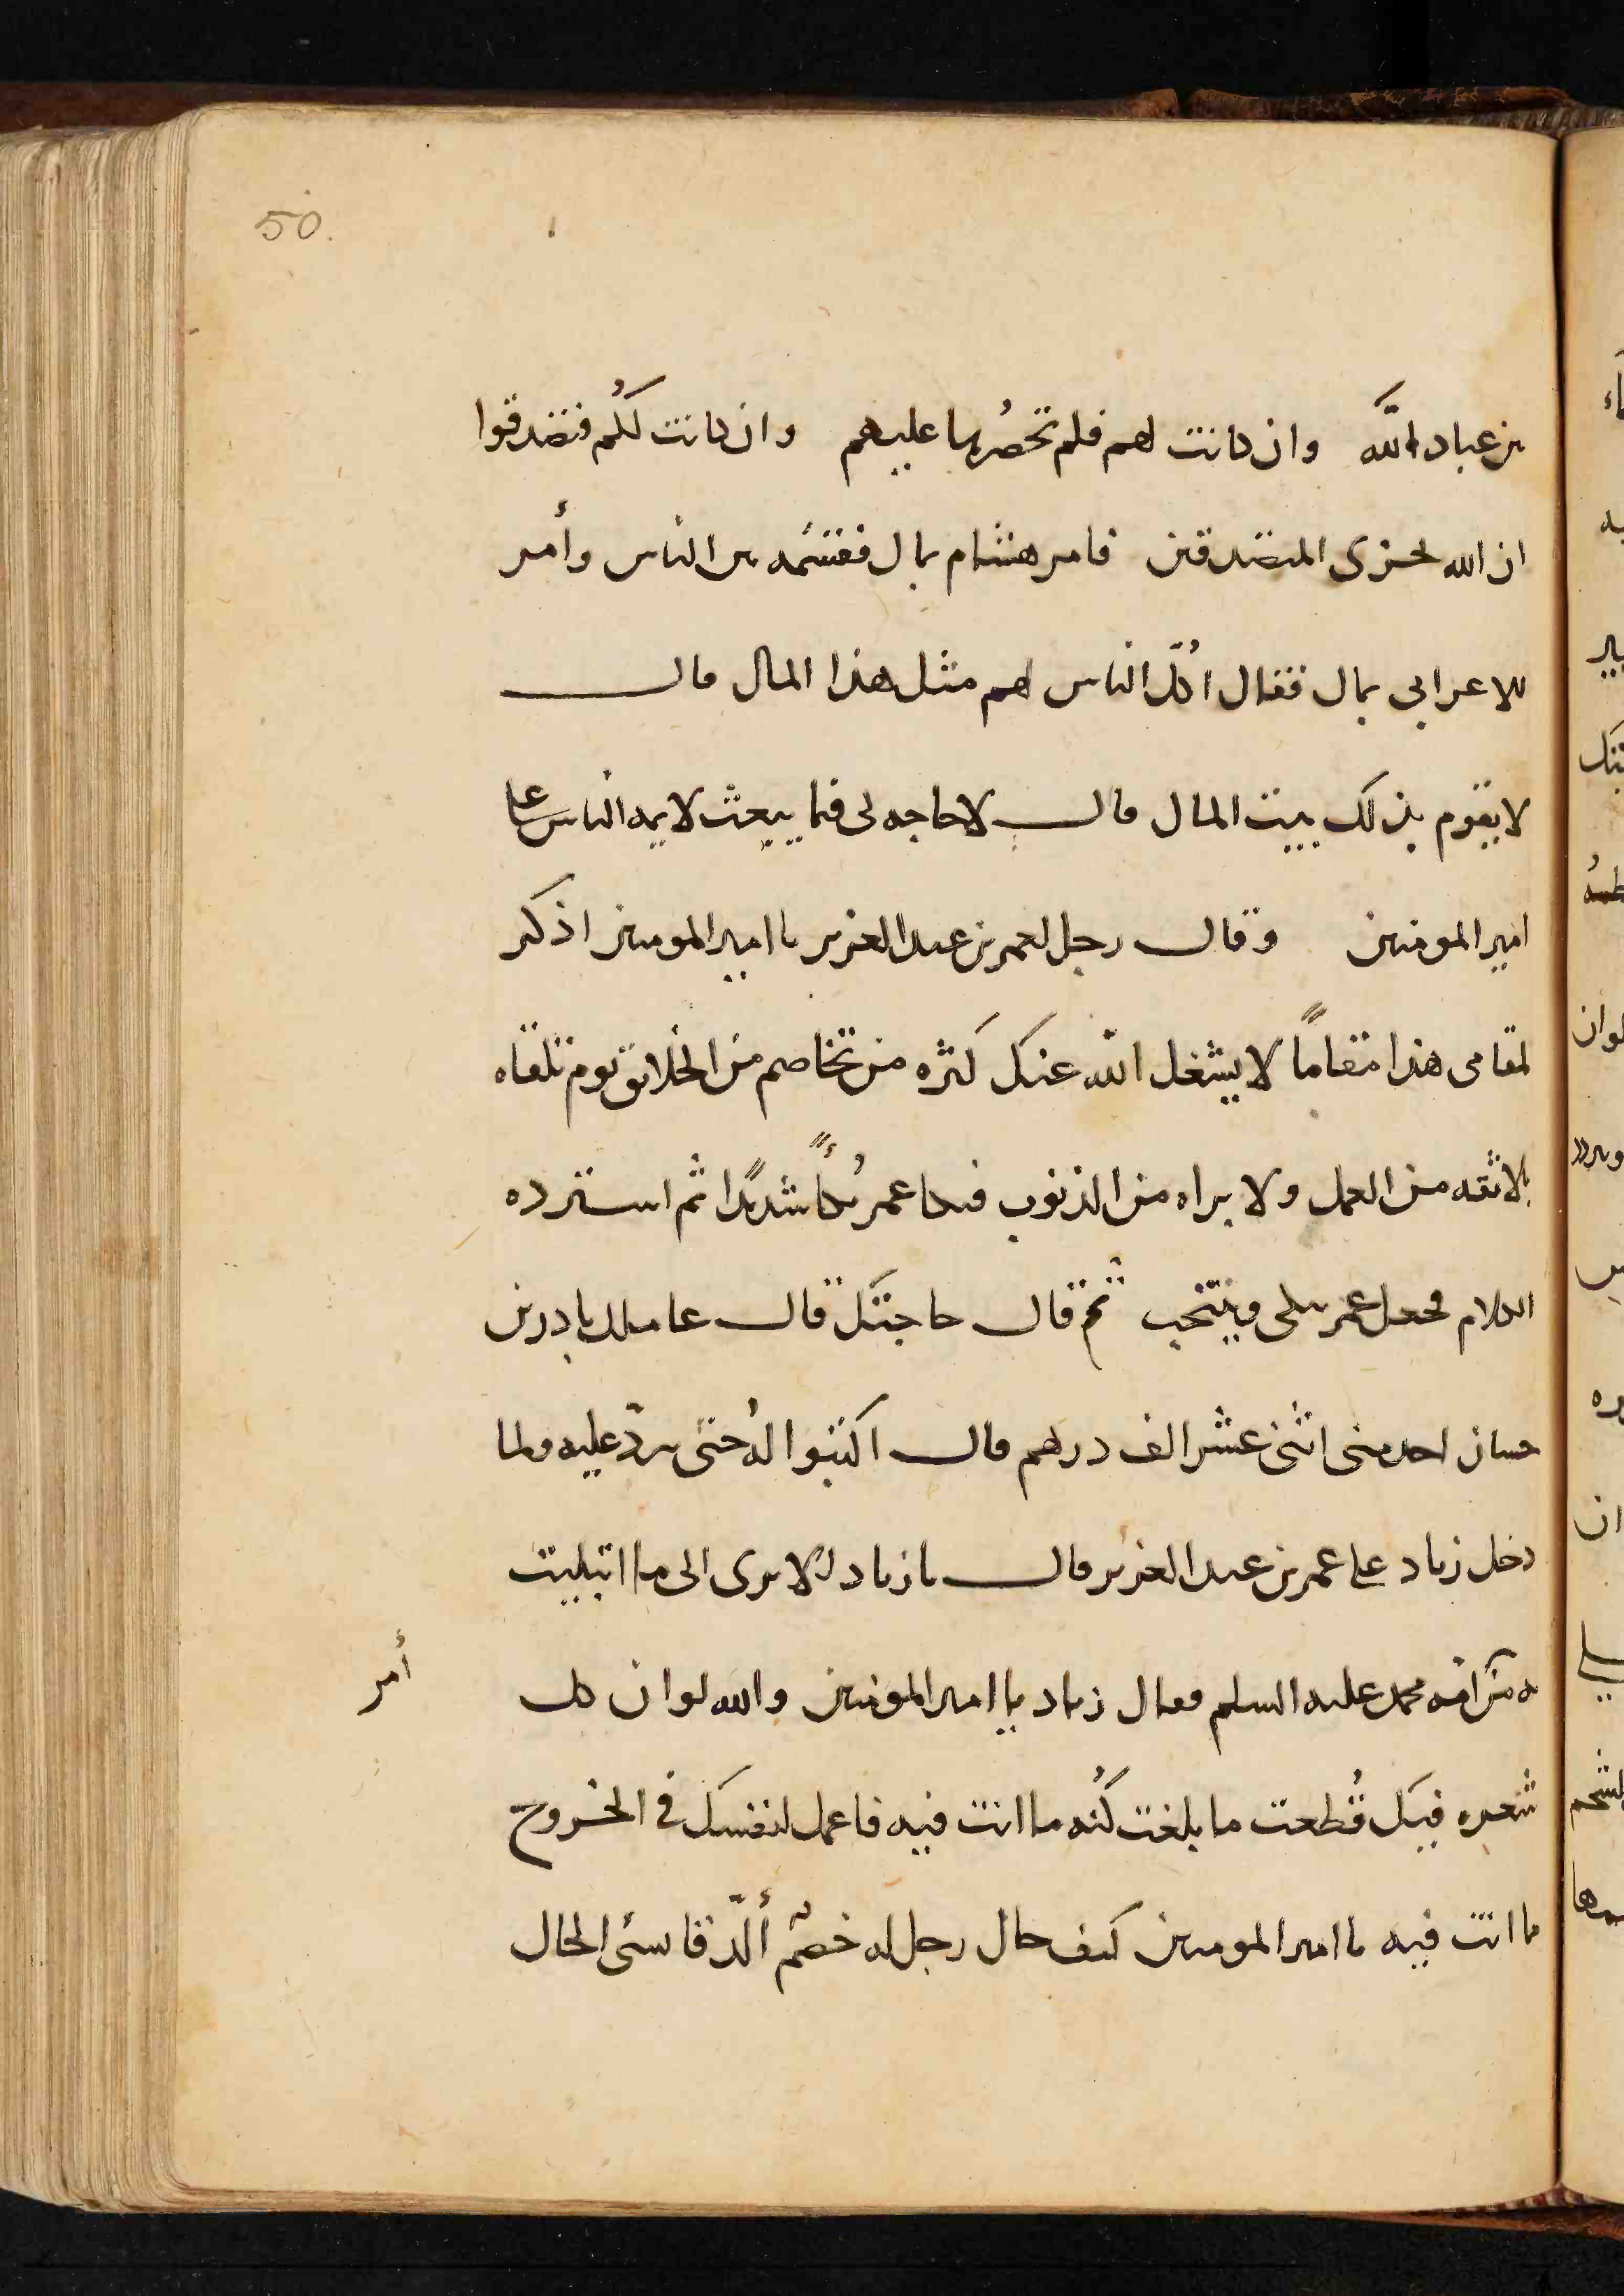 50.
بين عباد الله وان كانت لهم فلم تحصُرها عليهم وان كانت لكُم فتصدقوا
ان الله يجزى المتصدقين فامر هشام بمال فقسّمه بين الناس وأمر
للاعرابى بمال فقال اكُلّ الناس لهم مثل هذا المال قال
لا يقوم بذلك بيت المال قال لا حاجه لى فيما يبعث لايمه الناس على
امير المومنين وقال رجل لعمر بن عبد العزيز يا امير المومنين اذكر
لمقامى هذا مقاماً لا يشغل الله عنك كثره من تخاصم من الخلائق يوم تلقاه
بلا ثقه من العمل ولا براه من الذنوب فبكا عمر بُكاً شديدًا ثم استرده
الكلام فجعل عمر يبكى وينتحب ثم قال حاجتك قال عاملك باذربن
حسان اخذ منى اثنى عشر الف درهم قال اكتبوا لهُ حتى يردّ عليه ولما
دخل زياد على عمر بن عبد العزيز قال يا زياد الا ترى الى ما ابتليت
به من امه محمد عليه السلم فقال زياد يا امير المومنين والله لو ان كل
أمر
شعره فيك قُطعت ما بلغت كُنه ما انت فيه فاعمل لنفسك فى الخروج
ما انت فيه يا امير المومنين كيف حال رجل له خصم ألدّ قا سئى الحال